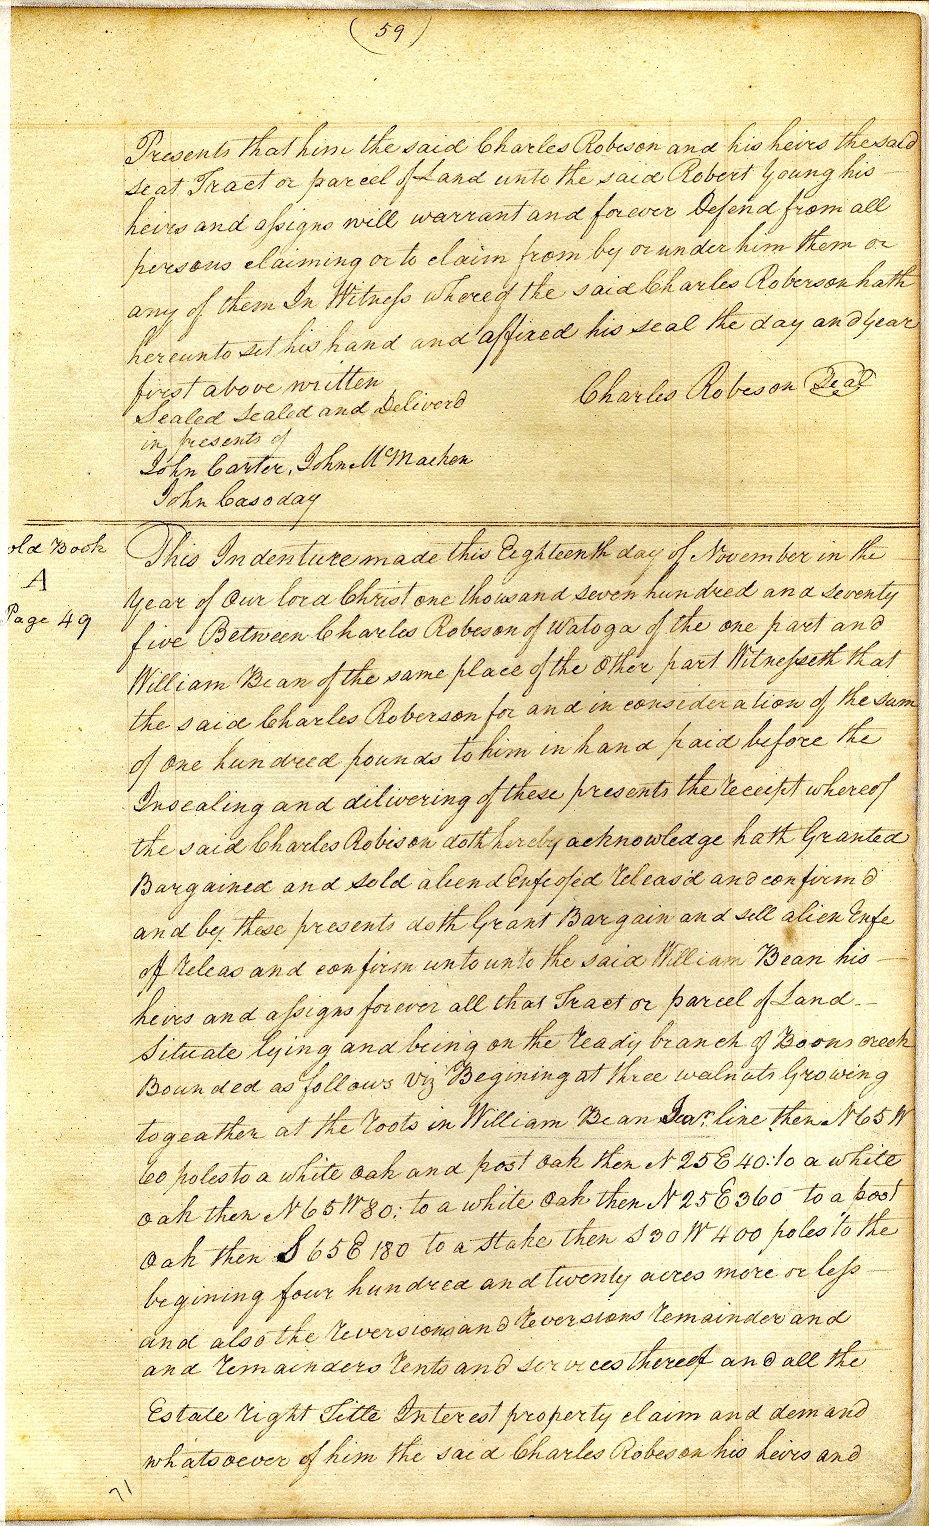 (59)
Presents that him the said Charles Robeson and his heirs the said
seat Tract or parcel of Land unto the said Robert Young his —
heirs and assigns will warrant and forever Defend from all
persons claiming or to claim from by or under him them or
any of them In Witness whereof the said Charles Roberson hath
hereunto set his hand and affixed his seal the day and year
first above written
Charles Robeson Seal
Sealed Sealed and Deliverd
in presents of
John Carter, John McMachen
John Casoday
old Book
A
Page 49
This Indenture made this Eighteenth day of November in the
year of our lord Christ one thousand seven hundred and seventy
five Between Charles Robeson of Watoga of the one part and
William Bean of the same place of the Other part Witnesseth that
the said Charles Roberson for and in consideration of the sum
of one hundred pounds to him in hand paid before the
Insealing and dilivering of these presents the receipt whereof
the said Charles Robison doth hereby acknowledge hath Granted
Bargained and sold aliend Enfeofed releasd and confirmd
and by these presents doth Grant Bargain and sell alien Enfe
off releas and confirm unto unto the said William Bean his —
heirs and assigns forever all that Tract or parcel of Land —
Situate lying and being on the ready branch of Boons creek
Bounded as follows viz Begining at three walnuts Growing
togeather at the roots in William Bean Junr. line then N 65 W
60 poles to a white oak and post oak then N 25 E 40: to a white
oak then N 65 W 80: to a white oak then N 25 E 360 to a post
oak then S 65 E 180 to a stake then S 30 W 400 poles to the
begining four hundred and twenty acres more or less —
and also the reversions and reversions remainder and
and remainders rents and services thereof and all the
Estate right Title Interest property claim and demand
whatsoever of him the said Charles Robeson his heirs and
71